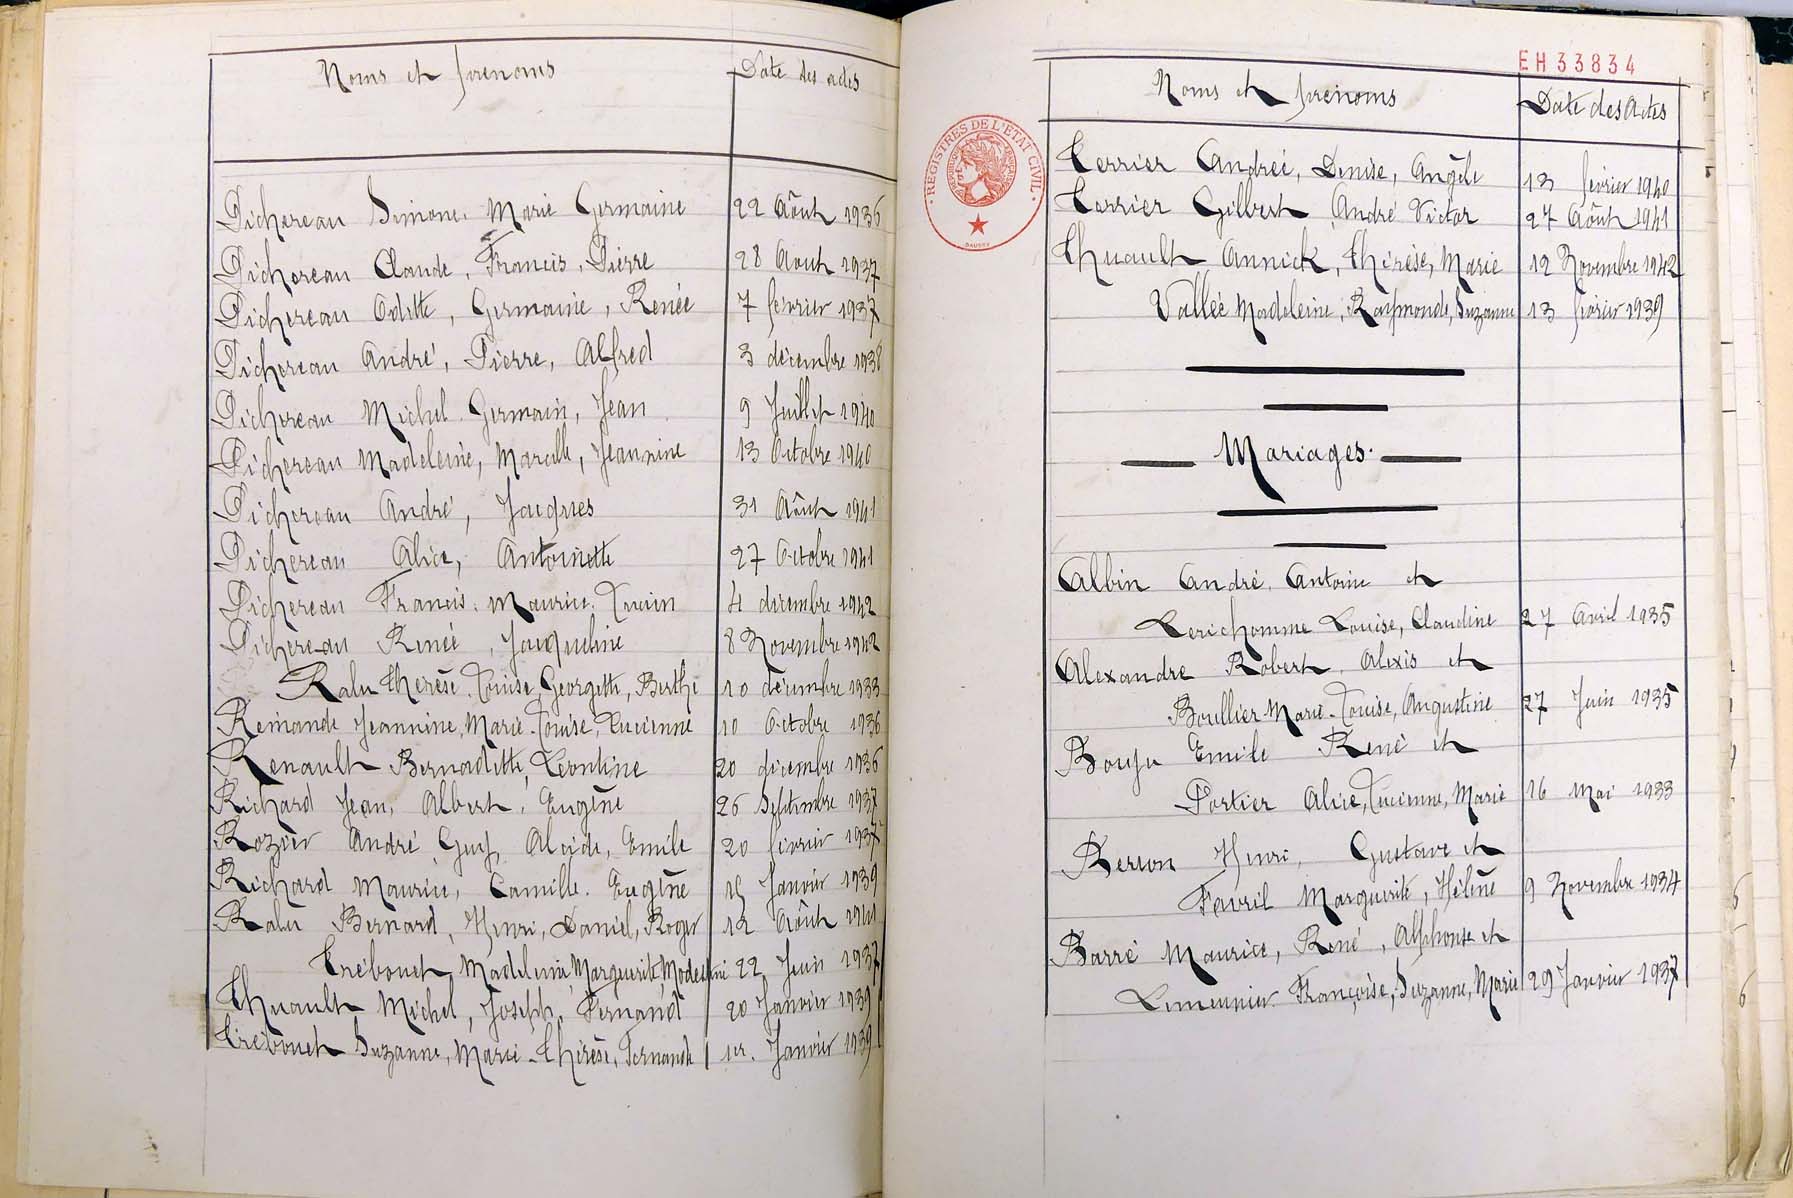 Noms et prénoms Date des actes
Pichereau Simone, Marie Germaine 22 Août 1936
Pichereau Claude, Francis, Pierre 28 Aout 1937
Pichereau Odette, Germaine, Renée 7 février 1937
Pichereau André, Pierre, Alfred 3 décembre 1938
Pichereau Michel Germain, Jean 9 Juillet 1940
Pichereau Madeleine, Marcelle, Jeannine 13 Octobre 1940
Pichereau André, Jacques 31 Août 1941
Pichereau Alice, Antoinette 27 Octobre 1941
Pichereau Francis, Maurice, Lucien 4 décembre 1942
Pichereau Renée, Jacqueline 8 Novembre 1942
Ralu Thérèse, Louise, Georgette, Berthe 10 décembre 1933
Remande Jeannine, Marie-Louise, Lucienne 10 Octobre 1936
Renault Bernadette, Léontine 20 décembre 1936
Richard Jean, Albert, Eugène 26 Septembre 1937
Rozier André Guy, Alcide, Emile 20 février 1937
Richard Maurice, Camille, Eugène 15 Janvier 1939
Ralu Bernard, Henri, Daniel, Roger 12 Août 1941
Trébouet Madeleine, Marguerite, Modestine 22 Juin 1937
Thuault Michel, Joseph, Fernand 20 Janvier 1939
Trébouet Suzanne, Marie-Thérèse, Fernande 1er. Janvier 1939
EH33834
Noms et prénoms Date des Actes
REGISTRES DE L'ÉTAT CIVIL
Terrier Andrée, Denise, Angèle 13 février 1940
Terrier Gilbert André Victor 27 Août 1941
Thuault Annick, Thérèse, Marie 12 Novembre 1942
Vallée Madeleine, Raymonde, Suzanne 13 février 1939
Mariages.
Albin André, Antoine et
Lerichomme Louise, Claudine 27 Avril 1935
Alexandre Robert, Alexis et
Boullier Marie-Louise, Augustine 27 Juin 1935
Bouju Emile René et
Portier Alice, Lucienne, Marie 16 Mai 1933
Henri, Gustave et
Favril Marguerite, Hélène 9 Novembre 1934
Barré Maurice, René, Alphonse et
Lemeunier Françoise, Suzanne, Marie 29 Janvier 1937